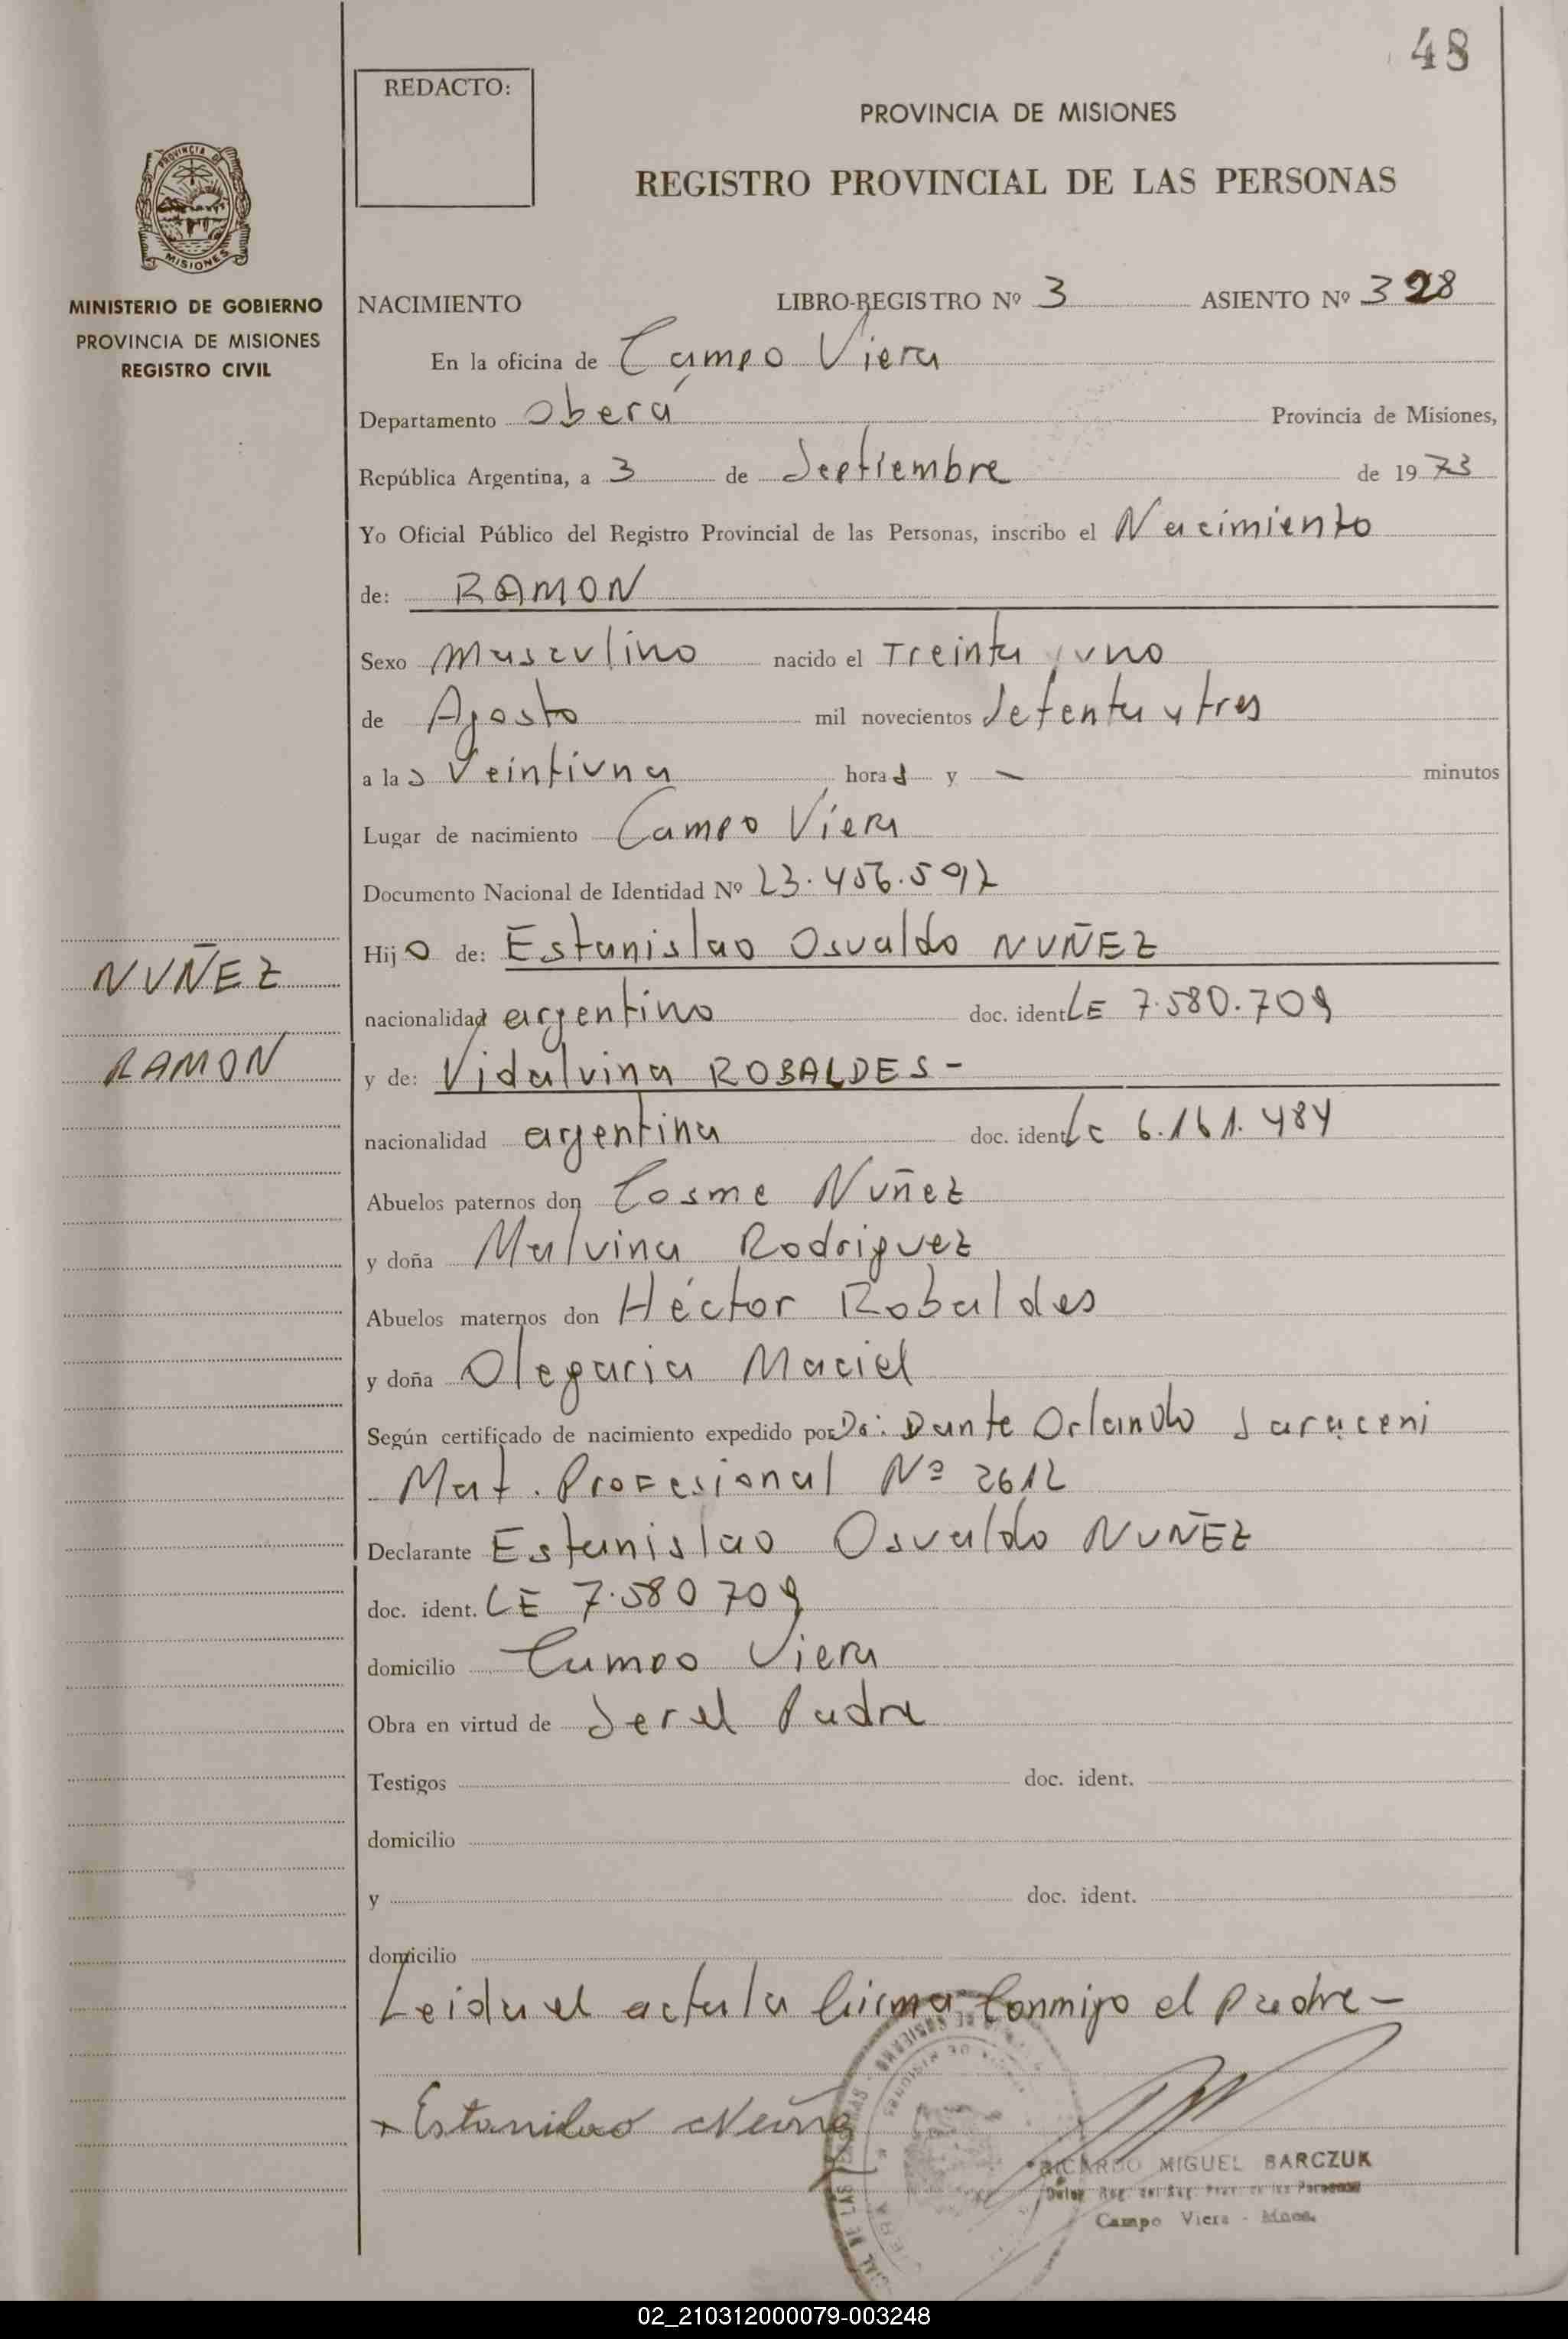 48
REDACTO:
PROVINCIA DE MISIONES
REGISTRO PROVINCIAL DE LAS PERSONAS
PROVINCIA DE
MISIONES
MINISTERIO DE GOBIERNO
PROVINCIA DE MISIONES
REGISTRO CIVIL
NACIMIENTO LIBRO-REGISTRO Nº 3 ASIENTO Nº 328
En la oficina de Campo Viera
Departamento Oberá Provincia de Misiones,
República Argentina, a 3 de Septiembre de 1973
Yo Oficial Público del Registro Provincial de las Personas, inscribo el Nacimiento
de: RAMON
Sexo Masculino nacido el Treinta y uno
de Agosto mil novecientos Setenta y tres
a las Veintiuna horas y — minutos
Lugar de nacimiento Campo Viera
Documento Nacional de Identidad Nº 23.456.592
Hijo de: Estanislao Osvaldo NUÑEZ
NUÑEZ
nacionalidad argentino doc. ident LE 7.580.709
RAMON
y de: Vidalvina ROBALDES -
nacionalidad argentina doc. ident Lc 6.161.484
Abuelos paternos don Cosme Nuñez
y doña Malvina Rodriguez
Abuelos maternos don Héctor Robaldes
y doña Olegaria Maciel
Según certificado de nacimiento expedido por Dr: Dante Orlando Saraceni
Mat. Profesional Nº 2612
Declarante Estanislao Osvaldo NUÑEZ
doc. ident. LE 7.580 709
domicilio Campo Viera
Obra en virtud de Ser el Padre
Testigos doc. ident.
domicilio
y doc. ident.
domicilio
Leida el acta la firma Conmigo el padre —
Estanilao Nuñez
RICARDO MIGUEL BARCZUK
Campo Viera - Mnes.
02_210312000079-003248